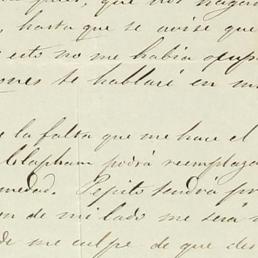 que nos hagan
, hasta que se avise que
esto no me habia ocup
ones te hablaré en mi
e la falta que me hace el
Clapham podrá reemplaza
medad. Pepito tendrá pr
n de mi lado me será
de me culpe de que des